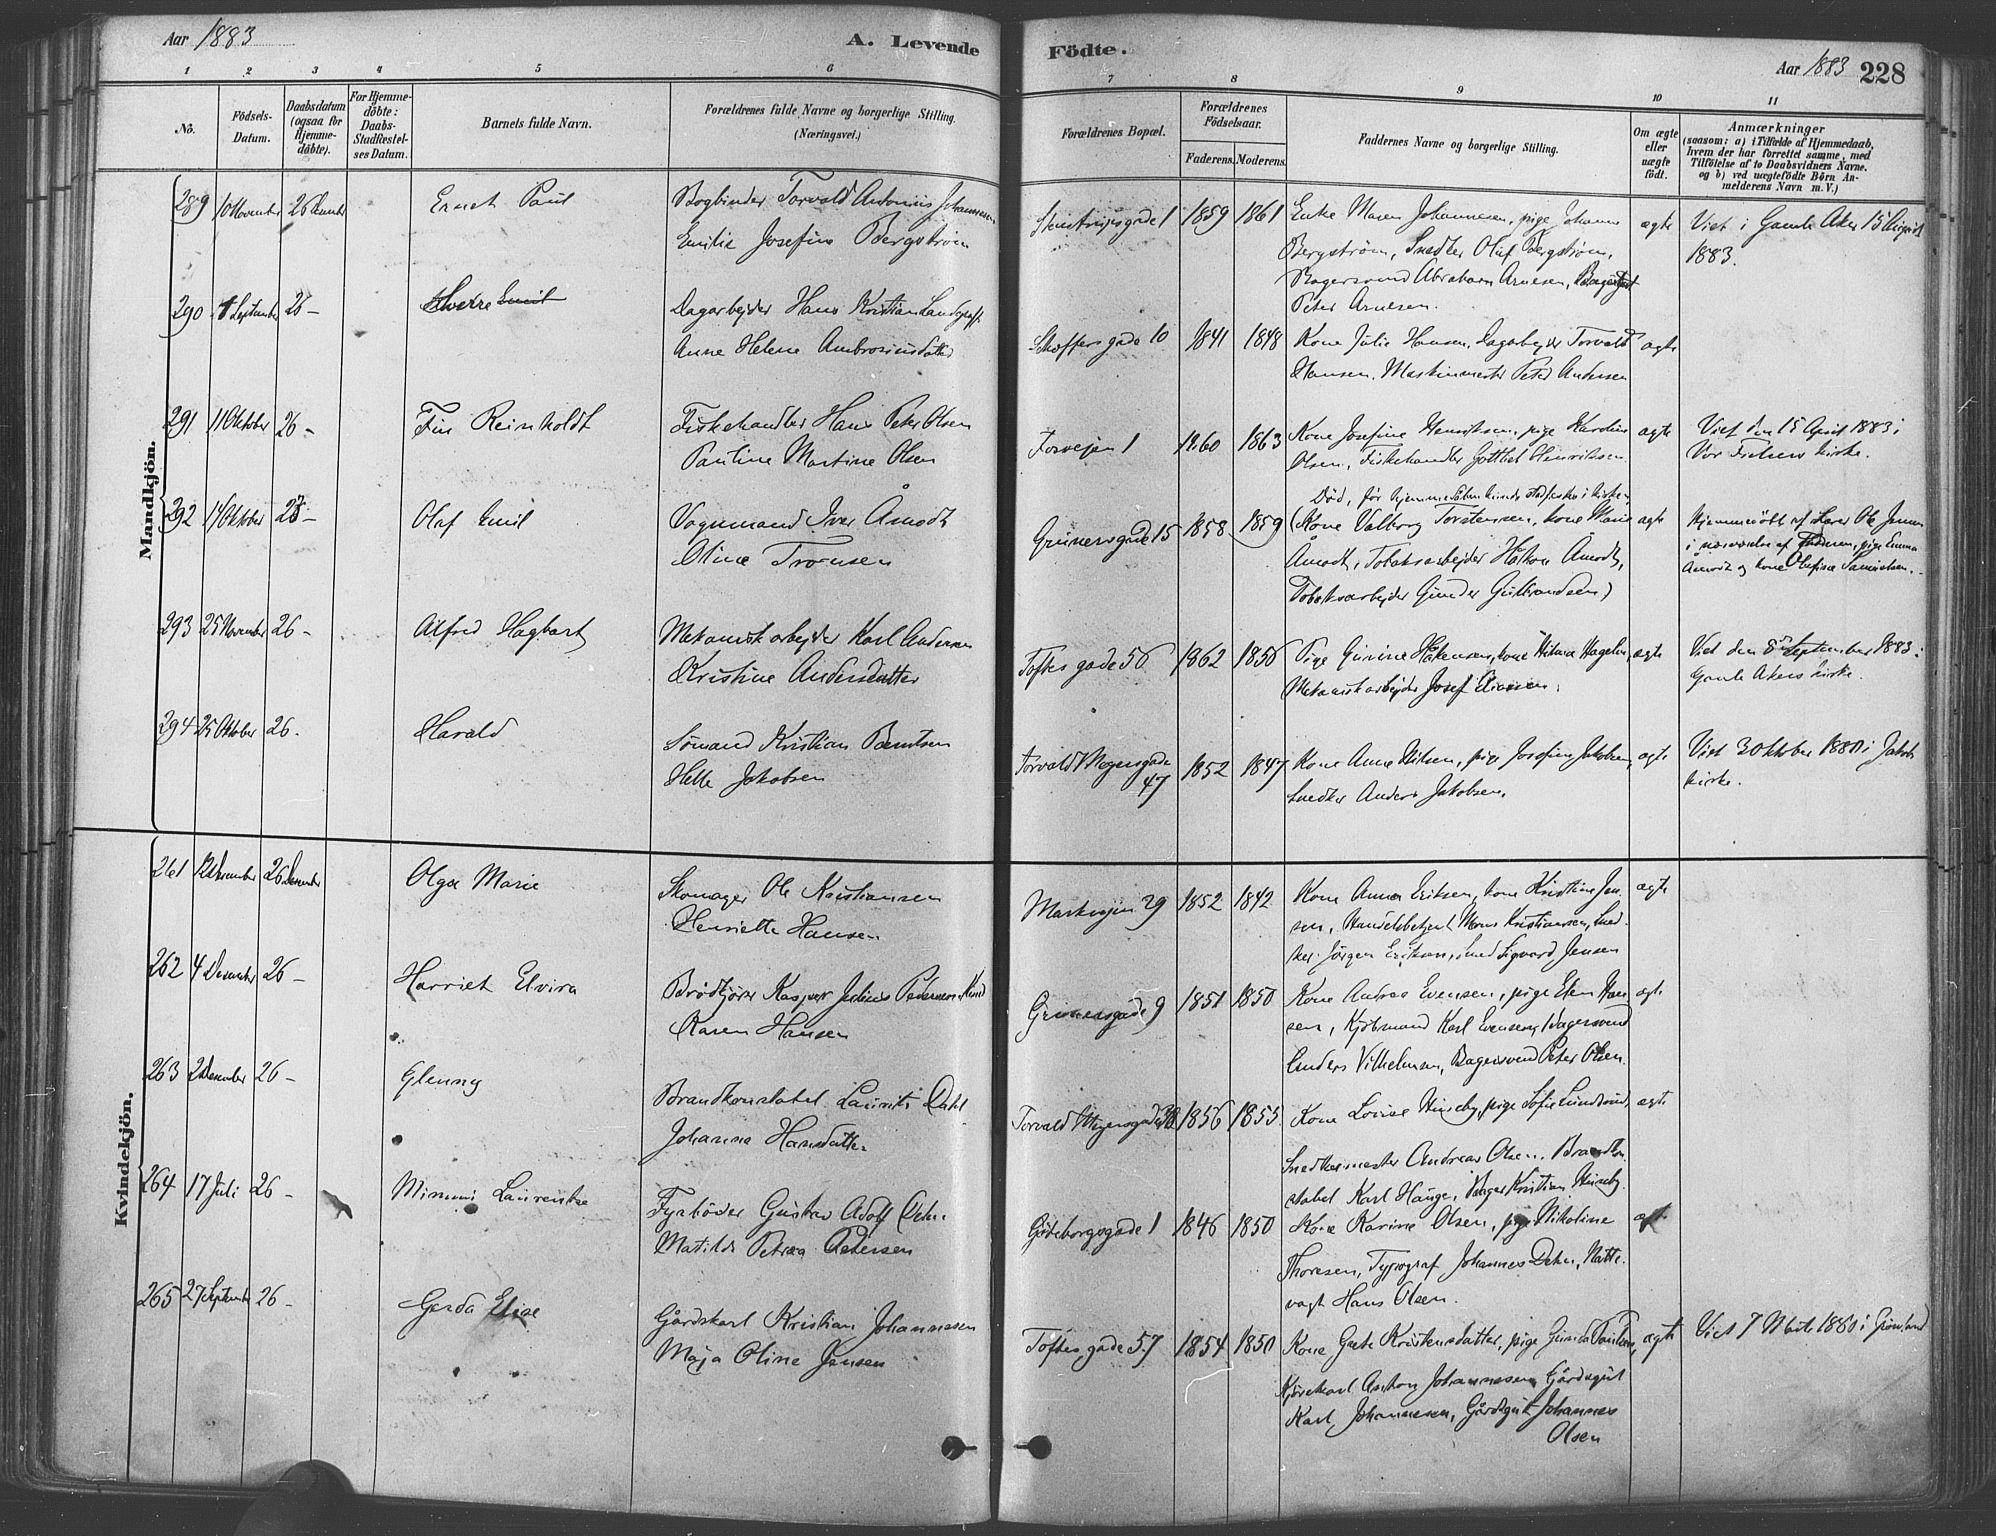 Aar 1883
A. Levende Födte.
Aar 1883 228
1 2 3 4 5 6 7 8 9 10 11
No.
Födsels-
Datum.
Daabsdatum
(ogsaa för
Hjemme-
döbte).
For Hjemme-
döbte:
Daabs-
Stadfæstel-
ses Datum.
Barnets fulde Navn.
Forældrenes fulde Navne og borgerlige Stilling.
(Næringsvei.)
Forældrenes Bopæl.
Forældrenes
Födselsaar.
Faderens. Moderens.
Faddernes Navne og borgerlige Stilling.
Om ægte
eller
uægte
födt.
Anmærkninger
(saasom: a) i Tilfælde af Hjemmedaab,
hvem der har forrettet samme, med
Tilföielse af to Daabsvidners Navne.
og b) ved uægtefödte Börn An-
melderens Navn m. V.)
Mandkjön.
289 10 November 26 Ernst Paul
Bogbinder Torvald Antonius Johannesen
Emilie Josefine Bergström
1 1859 1861
Enke Maren Johannesen, pige Johanne
Bergström, Snedker Olaf Bergström,
Bagersvend Abraham Arnesen,
Peter Arnesen.
ægte
Viet i Gamle Aker 15 August
1883.
290 September 26 - Sverre Emil
Dagarbejder Hans Kristian
Anne Helene Ambrosiusdatter
10 1841 1848
Kone Julie Hansen, Dagarbejder Torvald
Hansen, Maskinmester Peter Andersen
ægte
291 11 Oktober 26 - Fin Reinholdt
Fiskehandler Hans Peter Olsen
Pauline Martine Olsen
Torvejen 1 1860 1863
Kone Josefine Henriksen, pige Karoline
Olsen, Fiskehandler Gottlieb Henriksen
ægte
Viet den 15 April 1883 i
Vor Frelsers kirke.
292 14 Oktober - Olaf Emil
Vognmand Iver Åmodt
Oline Tronsen
Grünersgade 15 1858 1859
Död, för
(Kone Valborg Torstensen, kone Marie
Åmodt, Tobaksarbejder Håkon Åmodt,
Tobaksarbejder Gunder Gulbrandsen)
ægte
Hjemmedöbt af Lærer Ole Jensen
i nærværelse af Faderen, pige Emma
Åmodt og kone Olufine Samuelsen.
293 25 November 26 - Alfred Hagbart
Mekanisk arbejder Karl Andersen
Kristine Andersdatter
Toftes gade 56 1862 1856
Pige Gurine Håkensen, kone Hilma Hagelin,
Mekanisk arbejder Josef
ægte
Viet den 8 September 1883 i
Gamle Akers kirke.
294 25 Oktober 26. Harald
Sömand Kristian Berntsen
Helle Jakobsen
Torvald Meyersgade
47 1852 1847
Kone Anne Nilsen, pige Josefine Jakobsen,
Snedker Anders Jakobsen.
ægte
Viet 3 Oktober 1880 i Jakobs
kirke.
Kvindekjön.
261 12 December 26 December Olga Marie
Skomager Ole Kristiansen
Henriette Hansen
Markvejen 29 1852 1842
Kone Anna Eriksen, kone Kristine Jen-
sen, Handelsbetjent Mons Kristiansen, Sned-
ker Jörgen Eriksen, Smed Sigvard Jensen
ægte
262 4 December 26 - Harriet Elvira
Brödkjörer Kasper Julius Pedersen
Karen Hansen
Grünersgade 9 1851 1850
Kone Andrea Evensen, pige Elen Han-
sen, Kjöbmand Karl Evensen, Bagersvend
Anders Vilhelmsen, Bagersvend Peter Olsen.
ægte
263 2 December 26 - Glenny
Brandkonstabel Laurits Dahl
Johanna Hansdatter
Torvald Meyersgade 1856 1855
Kone Louise Huseby, pige Sofie Lundsund,
Snedkermester Andreas Olsen, Brandkon-
stabel Karl Hauge, Bager Kristian Huseby.
ægte
264 17 Juli 26 - Mimmi Laurentze
Fyrböder Gustav Adolf Dehn
Matilde Petrea Petersen
Göteborgsgade 1 1846 1850
Kone Karine Olsen, pige Nikoline
Thoresen, Typograf Johannes Dehn, Natte-
vagt Hans Olsen.
265 27 September 26 - Gerda Elise
Gårdskarl Kristian Johannesen
Maja Oline Jensen
Toftes gade 57 1854 1850
Kone Grete Kristensdatter, pige Gunda
Kjörekarl Anton Johannesen, Gårdsgut
Karl Johannesen, Gårdsgut Johannes
Olsen
ægte
Viet 7 Marts 1880 i Grönland